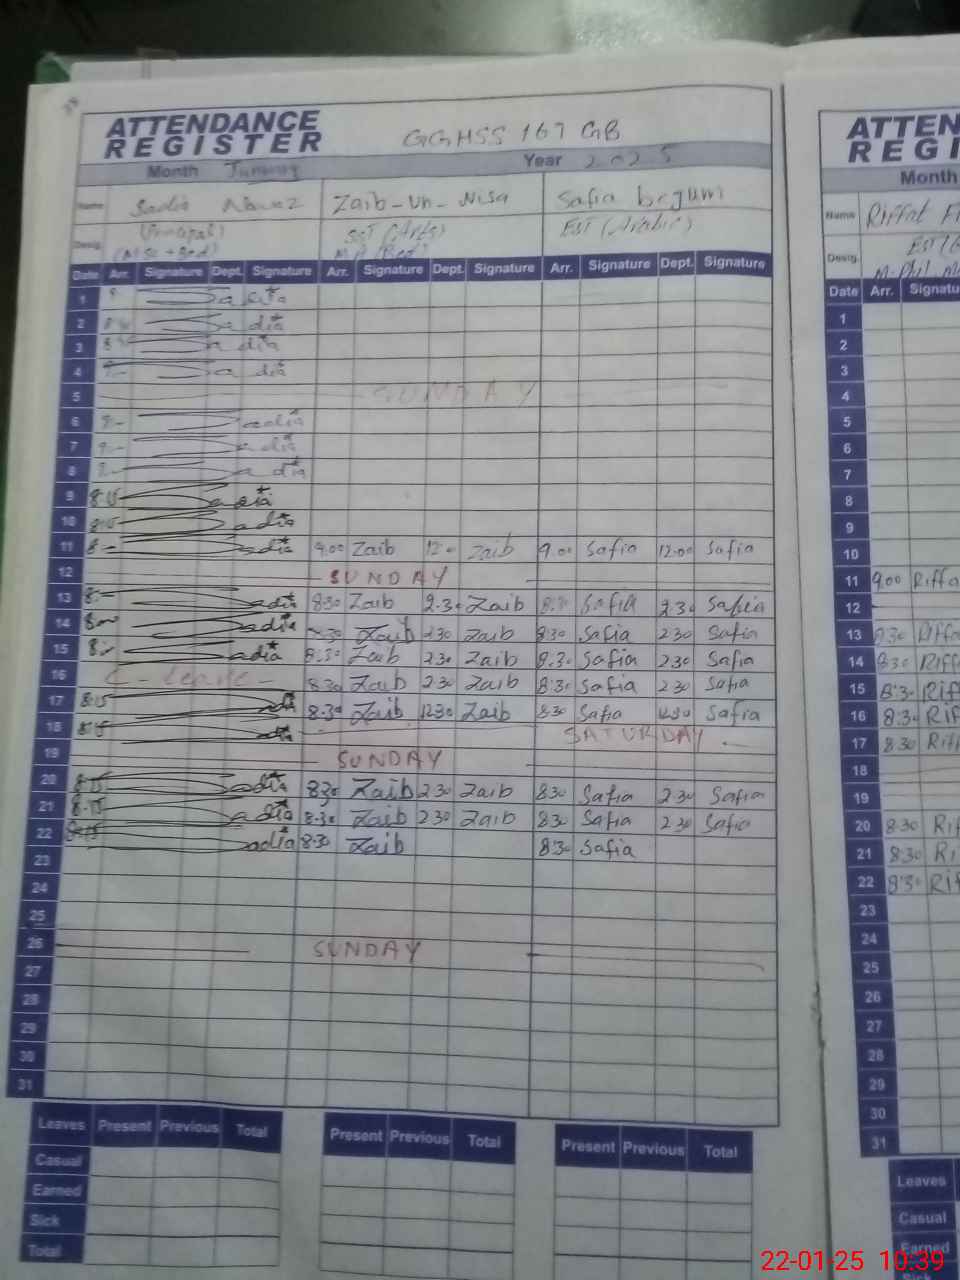 ATTENDANCE REGISTER GGHSS 167 GB
Month Year 2025
Name Sadia Nawaz Zaib-Un-Nisa Safia begum
Desig. Principal SST (Arts) EST (Arabic)
(M.Sc + Bed)
Date Arr. Signature Dept. Signature Arr. Signature Dept. Signature Arr. Signature Dept. Signature
1
2 Sadia
3 Sadia
4 Sadia
5 SUNDAY
6 Sadia
7 Sadia
8 Sadia
9 8:15 Sadia
10 8:15 Sadia
11 8- Sadia 9.00 Zaib 12.0 Zaib 9.00 Safia 12.00 Safia
12 SUNDAY
13 Sadia 8.30 Zaib 2.30 Zaib Safia 2.30 Safia
14 Sadia Zaib 2 30 Zaib 8:30 Safia 2 30 Safia
15 Sadia 8:30 Zaib 2 30 Zaib 8:30 Safia 2 30 Safia
16 C-Leave- 8:30 Zaib 2 30 Zaib 8:30 Safia 2 30 Safia
17 8:15 8:30 Zaib 12:30 Zaib 8:30 Safia 12:30 Safia
18 8:15 SATURDAY
19 SUNDAY
20 8:15 Sadia 8:30 Zaib 2 30 Zaib 8:30 Safia 2 30 Safia
21 8:15 Sadia 8:30 Zaib 2 30 Zaib 8:30 Safia 2 30 Safia
22 8:15 Sadia 8:30 Zaib 8:30 Safia
23
24
25
26 SUNDAY
27
28
29
30
31
Leaves Present Previous Total Present Previous Total Present Previous Total
Casual
Earned
Sick
Total
ATTEN
REGI
Month
Name Riffat
Desig.
M-Phil
Date Arr. Signatu
1
2
3
4
5
6
7
8
9
10
11 9.00 Riffa
12
13 8:30 Riff
14 8:30 Riff
15 8:30 Riff
16 8:30 Rif
17 8:30 Rif
18
19
20 8:30 Rif
21 8:30 Ri
22 8:30 Rif
23
24
25
26
27
28
29
30
31
Leaves
Casual
Earned
22-01-25 10:39